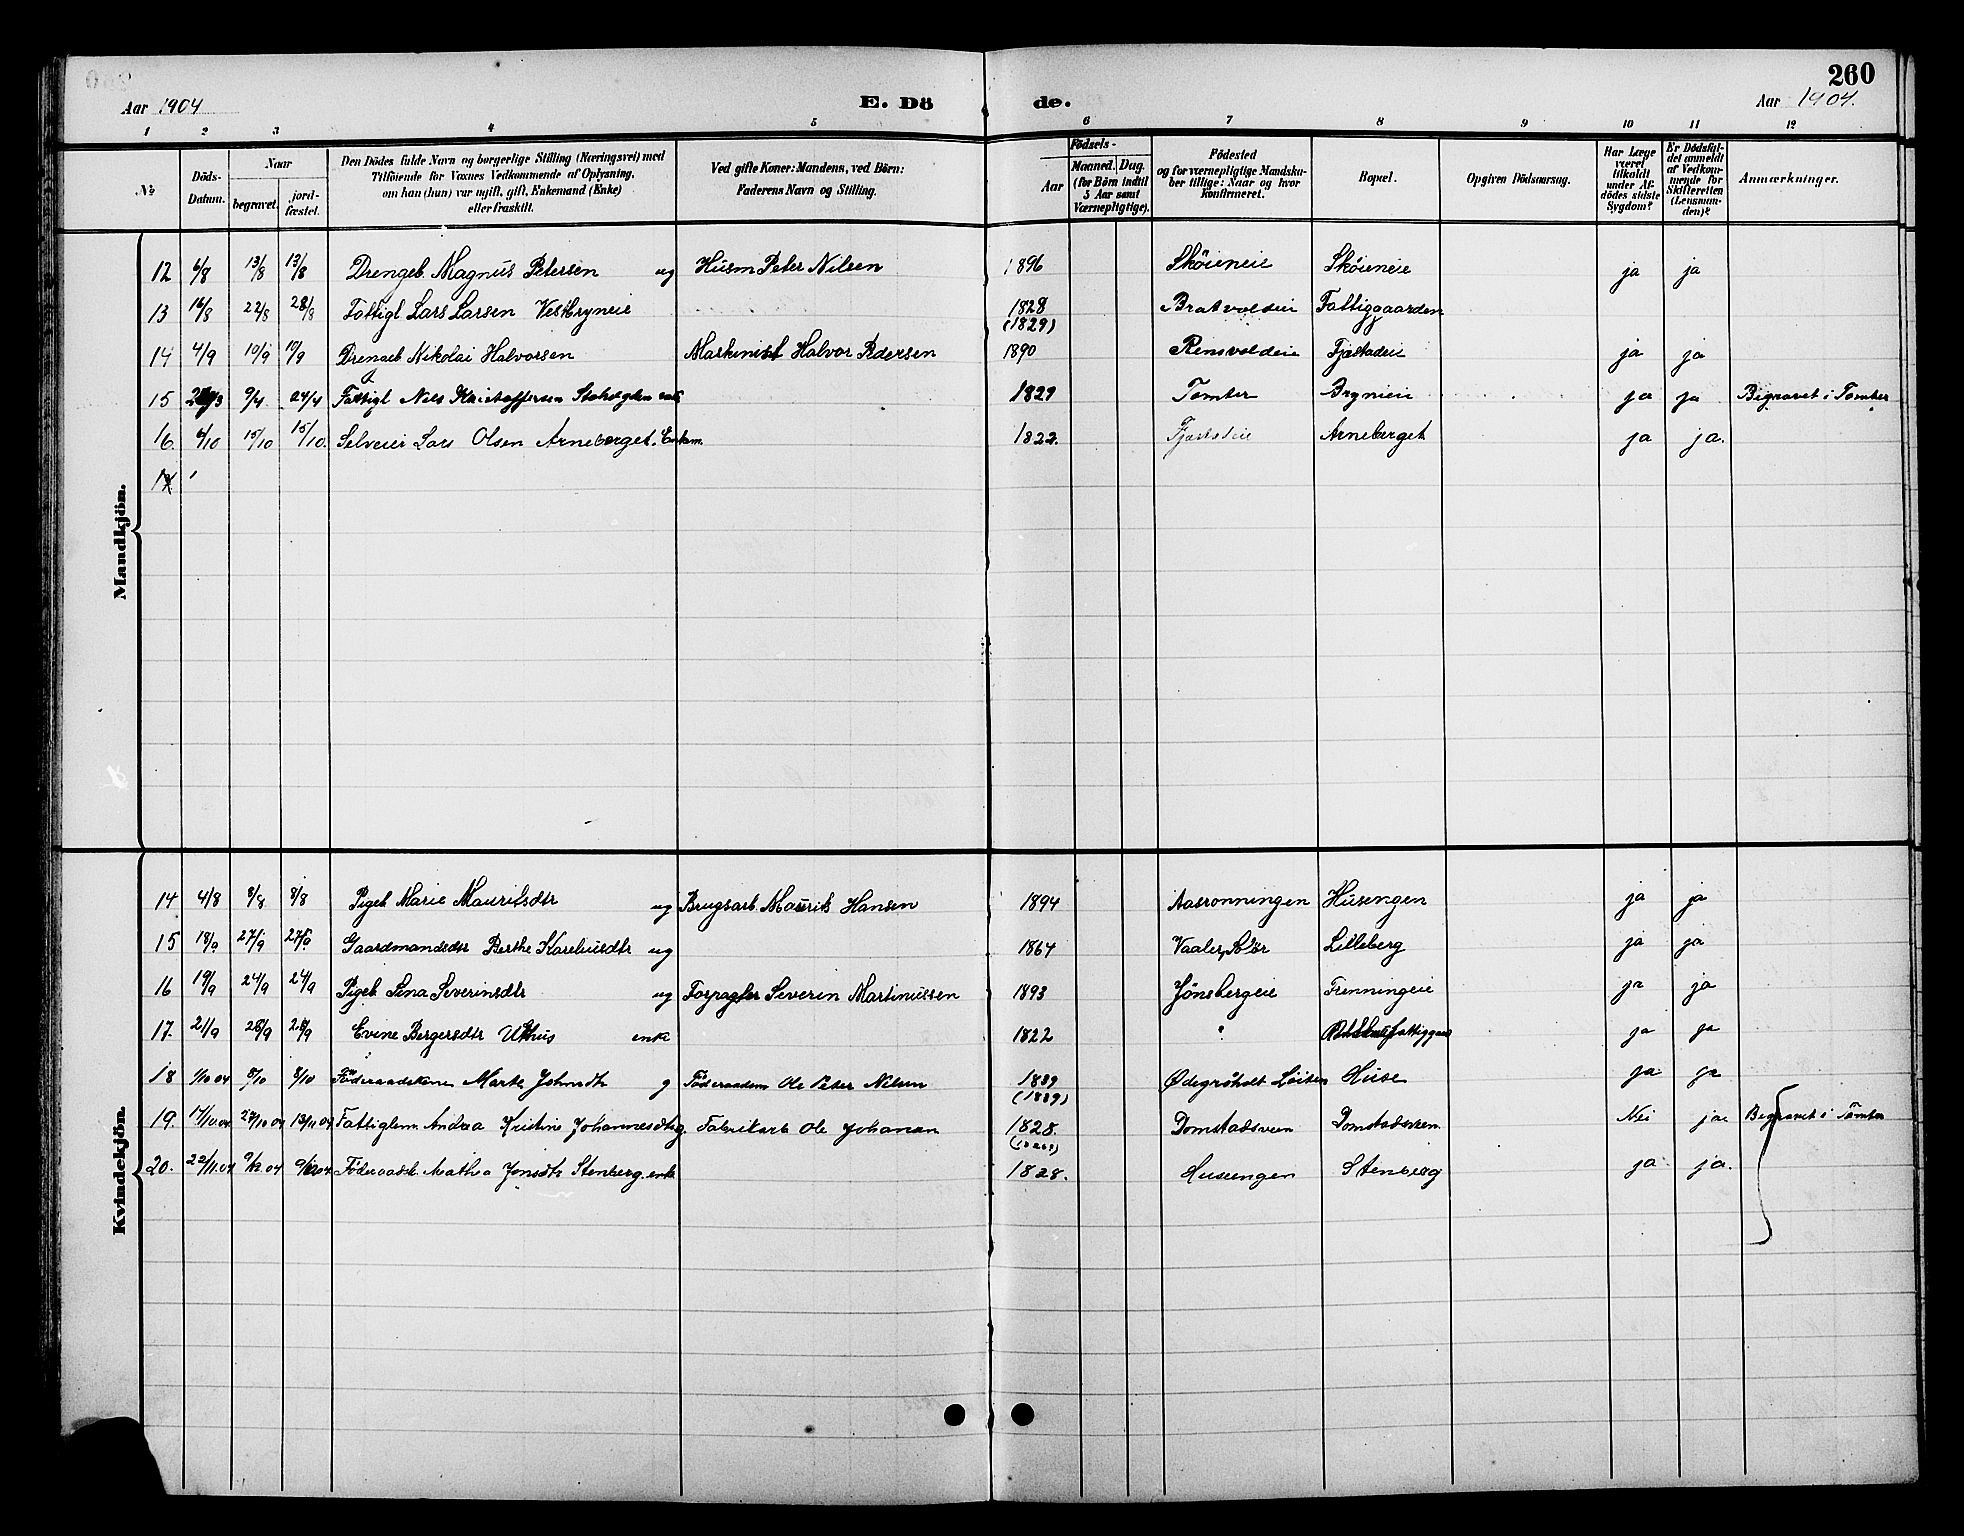 260
Aar 1904 E. Dö de. Aar 1904.
1 2 3 4 5 6 7 8 9 10 11 12
№ Döds-Datum. Naar begravet. jordfæstet. Den Dödes fulde Navn og borgerlige Stilling (Næringsvei) med Tilföiende for Voxnes Vedkommende af Oplysning, om han (hun) var ugift, gift, Enkemand (Enke) eller fraskilt. Ved gifte Koner: Mandens, ved Börn: Faderens Navn og Stilling. Födsels- Aar Maaned. Dag. (for Börn indtil 5 Aar samt Værnepligtige). Födested og for værnepligtige Mandskaber tillige: Naar og hvor konfirmeret. Bopæl. Opgiven Dödsaarsag. Har Læge været tilkaldt under Afdödes sidste Sygdom? Er Dödsfaldet anmeldt af Vedkommende for Skifteretten (Lensmanden)? Anmærkninger.
Mandkjön.
12 6/8 13/8 13/8 Drengeb. Magnus Petersen ug Husm Peter Nilsen 1896 Skøieneie Skøieneie ja ja
13 16/8 22/8 28/8 Fattigl Lars Larsen Vestbryneie 1828 (1829) Bratvoldeie Fattiggaarden
14 4/9 10/9 10/9 Drengeb Nikolai Halvorsen Maskinist Halvor Pedersen 1890 Rensvoldeie Fjæstadeie ja ja
15 9/4 24/4 Fattigl Nils Kristoffersen 1829 Tomter Brynieie ja ja Begravet i Tomter
16. 6/10 15/10 15/10. Selveier Lars Olsen Arneberget. Enkem. 1822. Fjæstadeie Arneberget ja ja.
Kvindekjön.
14 4/8 8/8 8/8 Pigeb Marie Mauritsdtr ug Brugsarb. Maurits Hansen 1894 Aasronningen Husengen ja ja
15 18/9 27/9 27/9 Gaardmandsdtr Berthe Kareliusdtr ug 1864 Vaaler, Solør Lilleberg ja ja
16 19/9 24/9 24/9 Pigeb Lina Severinsdtr ug Forpagter Severin Martinussen 1893 Jønsbergeie Frenningeie ja ja
17. 21/9 28/9 28/9 Evine Bergersdtr Uthus enke 1822 " ja ja
18 1/10 04 8/10 8/10 Föderaadskone Marte Johnsdtr g Föderaadsm Ole Peter Nilsen 1839 (1839) Ødegrøholt Løiten Huse ja ja
19. 17/10.04 27/10 04 13/11 04 Fattiglem Andrea Kristine Johannesdtr g. Fabrikarb Ole Johansen 1828. Domstadsveen Domstadsveen Nei ja Begravet i Tomter
20. 22/11.04 9/12.04 9/12 04 Föderaadsk Mathea Jonsdtr Stenberg. enke 1828. Husengen Stenberg ja ja.